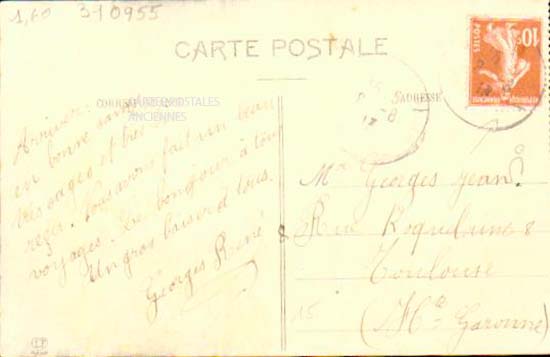 1,60 3-10955
CARTE POSTALE
CORRESPONDANCE
ADRESSE
CARTES POSTALES
ANCIENNES
10c
POSTES
REPUBLIQUE FRANÇAISE
en bonne santé
très sages et très
Nous avons fait un beau
voyage. Le bonjour à tous
Un gros baiser à tous.
Georges René
Mr Georges Jean
Rue Roquelaine 8
8
Toulouse
15
(Hte Garonne)